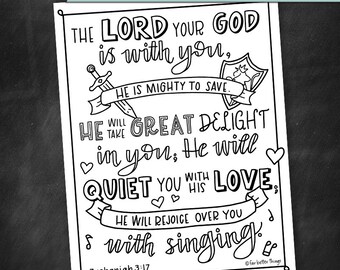 THE LORD YOUR GOD
is with you,
HE IS MIGHTY TO SAVE.
HE WILL TAKE GREAT DELIGHT
in you; He will
QUIET YOU WITH HIS LOVE,
HE WILL REJOICE OVER YOU
with singing.
Zephaniah 3:17
© far better things